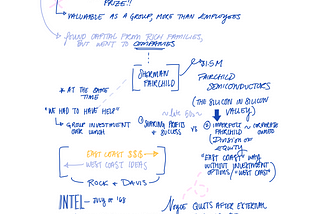 PRIZE!!
VALUABLE AS A GROUP, MORE THAN EMPLOYEES
FOUND CAPITAL FROM RICH FAMILIES,
BUT WENT TO COMPANIES
SHERMAN
FAIRCHILD
$1.5M
FAIRCHILD
SEMICONDUCTORS
(THE SILICON IN SILICON
VALLEY)
* AT THE SAME
TIME
"WE HAD TO HAVE HELP"
GROUP INVESTMENT
OVER LUNCH
~late 60s~
① SHARING PROFITS
& SUCCESS
VS
② FAIRCHILD
(DIVISION OF
EQUITY
~ CORPORATE
OWNED
"EAST COAST" WAY
WITHOUT INVESTMENT
OPTIONS/"WEST COAST"
EAST COAST $$$
WEST COAST IDEAS
ROCK & DAVIS
INTEL - July of '68
NOYCE QUITS AFTER EXTERNAL